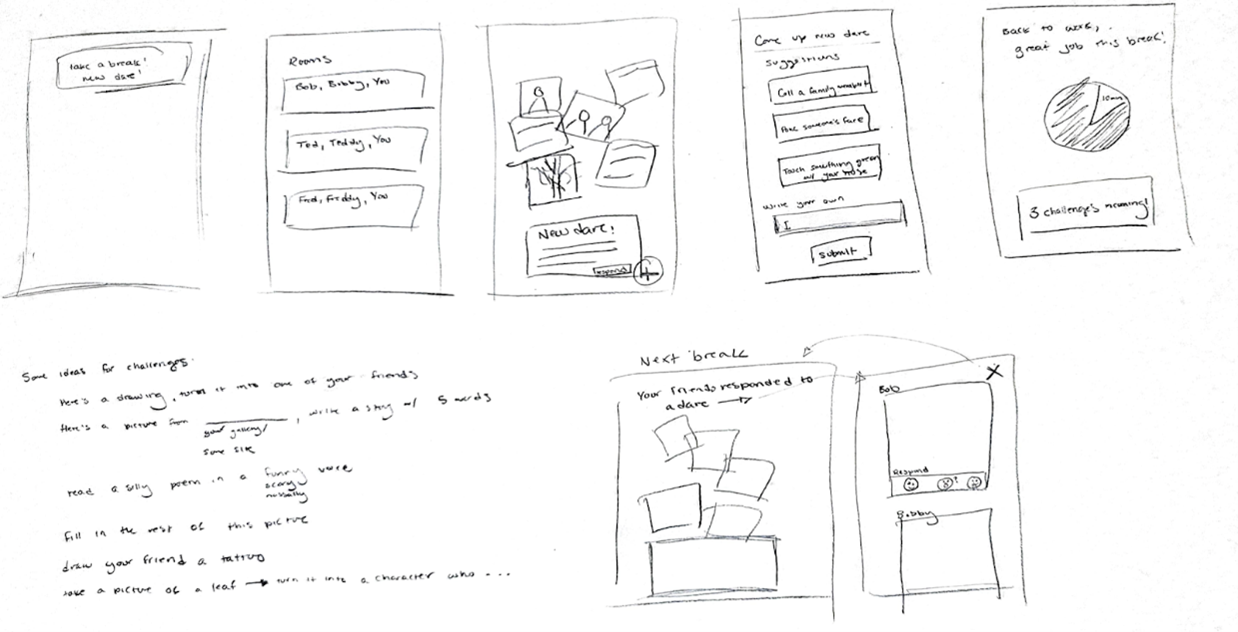 Take a break!
new dare!
Rooms
Bob, Bobby, You
Ted, Teddy, You
Fred, Freddy, You
New dare!
respond
Come up new dare
Suggestions
Call a family member
Poke someone's face
Touch something green
w/ your nose
Write your own
I
submit
Back to work,
great job this break!
10min
3 challenges incoming!
Some ideas for challenges:
Here's a drawing, turn it into one of your friends
Here's a picture from , write a story w/ 5 words
your gallery/
some site
read a silly poem in a funny voice
scary
fill in the rest of this picture
draw your friend a tattoo
take a picture of a leaf → turn it into a character who ...
Next break
Your friends responded to
a dare →
X
Bob
Respond
Bobby